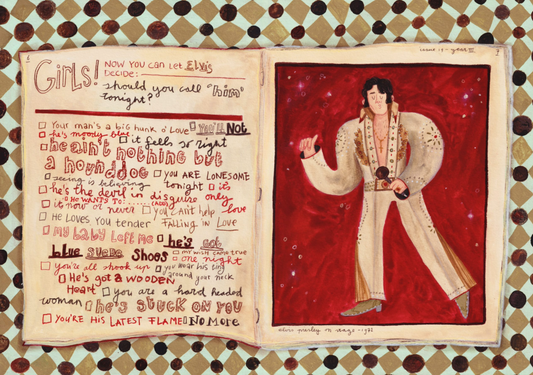 GIRLS! NOW YOU CAN LET Elvis
DECIDE:
should you call "him"
tonight?
□ Your man's a big hunk o' Love □ You'll Not
□ he's moody blue □ it feels so right
□ he ain't nothing but
a hounddog □ you ARE LONESOME
□ seeing is believing tonight □ it's
□ he's the devil in disguise only
□ it now or never □ you can't help love
□ He loves you tender FALLING IN LOVE
□ my baby left me □ he's got
blue suede shoes □ my wish came true
□ one night
□ you're all shook up □ you wear his ring
around your neck
□ He's got a WOODEN
Heart □ you are a hard headed
woman □ he's stuck on you
□ YOU'RE HIS LATEST FLAME □ No More
elvis presley on stage